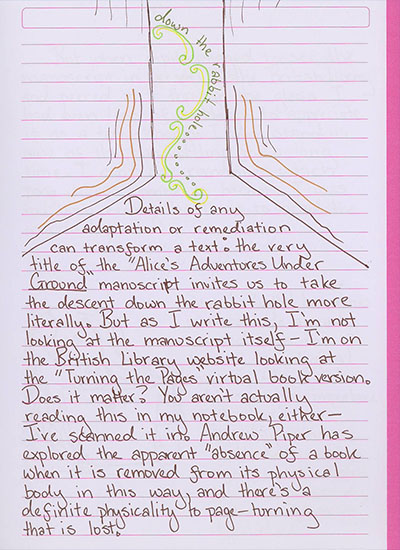 down the rabbit hole.......
Details of any
adaptation or remediation
can transform a text: the very
title of the "Alice's Adventures Under
Ground" manuscript invites us to take
the descent down the rabbit hole more
literally. But as I write this, I'm not
looking at the manuscript itself – I'm on
the British Library website looking at
the "Turning the Pages" virtual book version.
Does it matter? You aren't actually
reading this in my notebook, either–
I've scanned it in. Andrew Piper has
explored the apparent "absence" of a book
when it is removed from its physical
body in this way, and there's a
definite physicality to page-turning
that is lost.